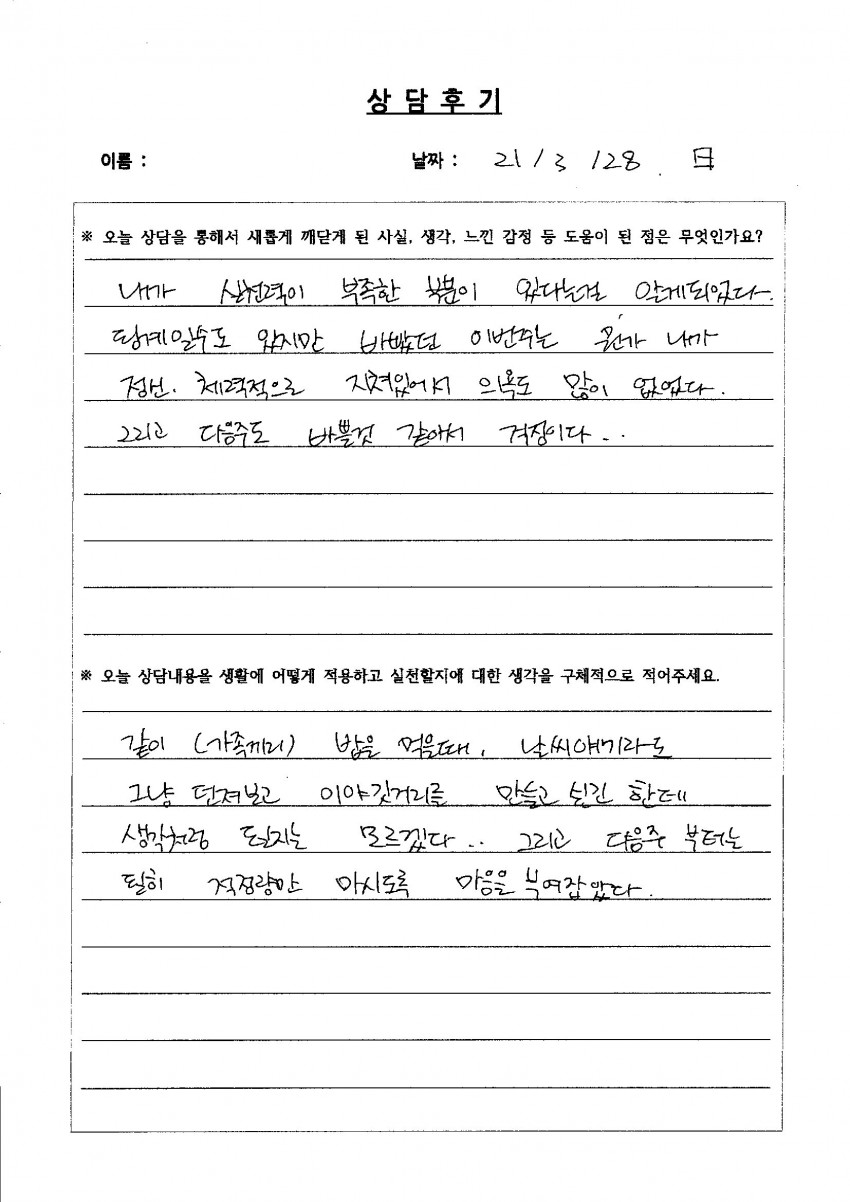 상 담 후 기
이름 : 날짜 : 21 / 3 / 28 日
※ 오늘 상담을 통해서 새롭게 깨닫게 된 사실, 생각, 느낀 감정 등 도움이 된 점은 무엇인가요?
내가 실현력이 부족한 부분이 있다는걸 알게되었다.
핑계일수도 있지만 바빴던 이번주는 뭔가 내가
정신. 체력적으로 지쳐있어서 의욕도 많이 없었다.
그리고 다음주도 바쁠것 같아서 걱정이다..
※ 오늘 상담내용을 생활에 어떻게 적용하고 실천할지에 대한 생각을 구체적으로 적어주세요.
같이 (가족끼리) 밥을 먹을때, 날씨얘기라도
그냥 던져보고 이야깃거리를 만들고 싶긴 한데
생각처럼 될지는 모르겠다.. 그리고 다음주 부터는
필히 적정량만 마시도록 마음을 부여잡았다.